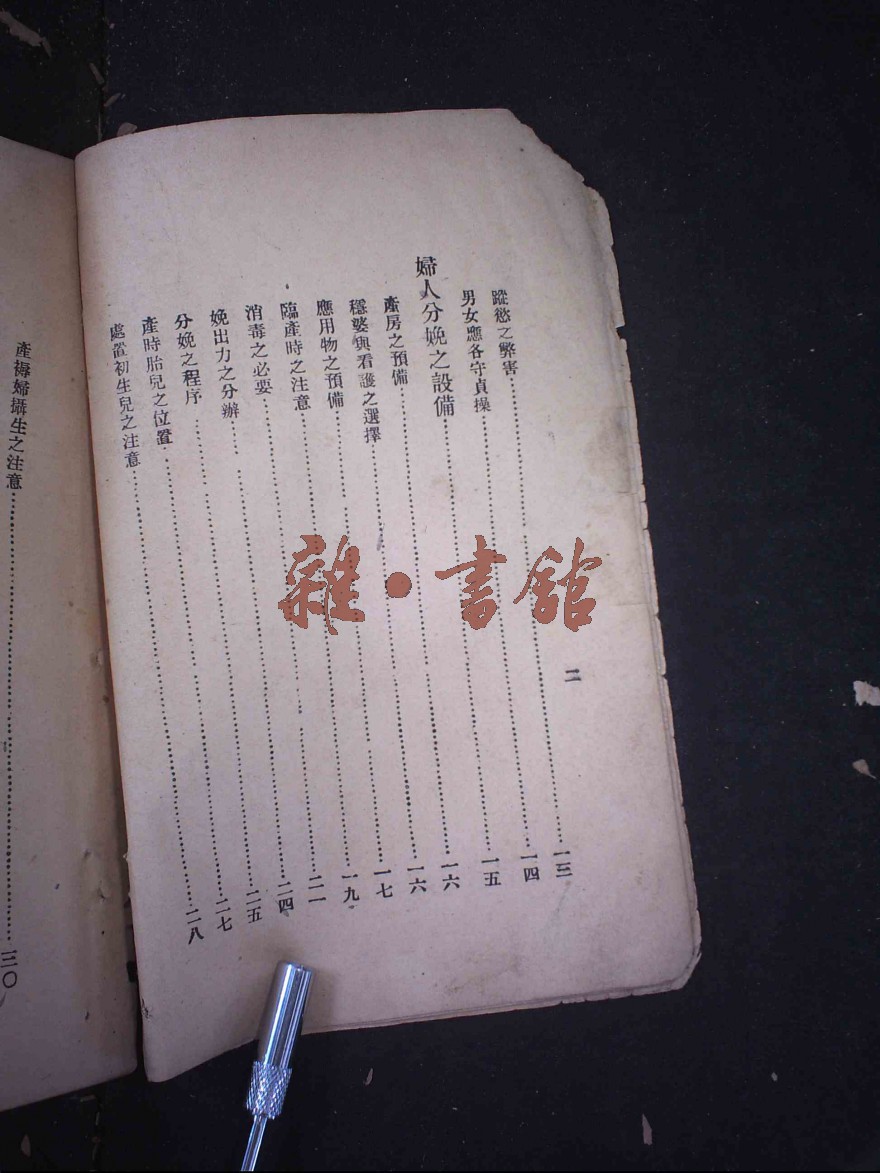 二
蹤慾之弊害……一三
男女應各守貞操……一四
婦人分娩之設備……一五
產房之預備……一六
穩婆與看護之選擇……一六
應用物之預備……一七
臨產時之注意……一九
消毒之必要……二一
娩出力之分辦……二四
分娩之程序……二五
產時胎兒之位置……二七
處置初生兒之注意……二八
產褥婦攝生之注意……三〇
雜·書館